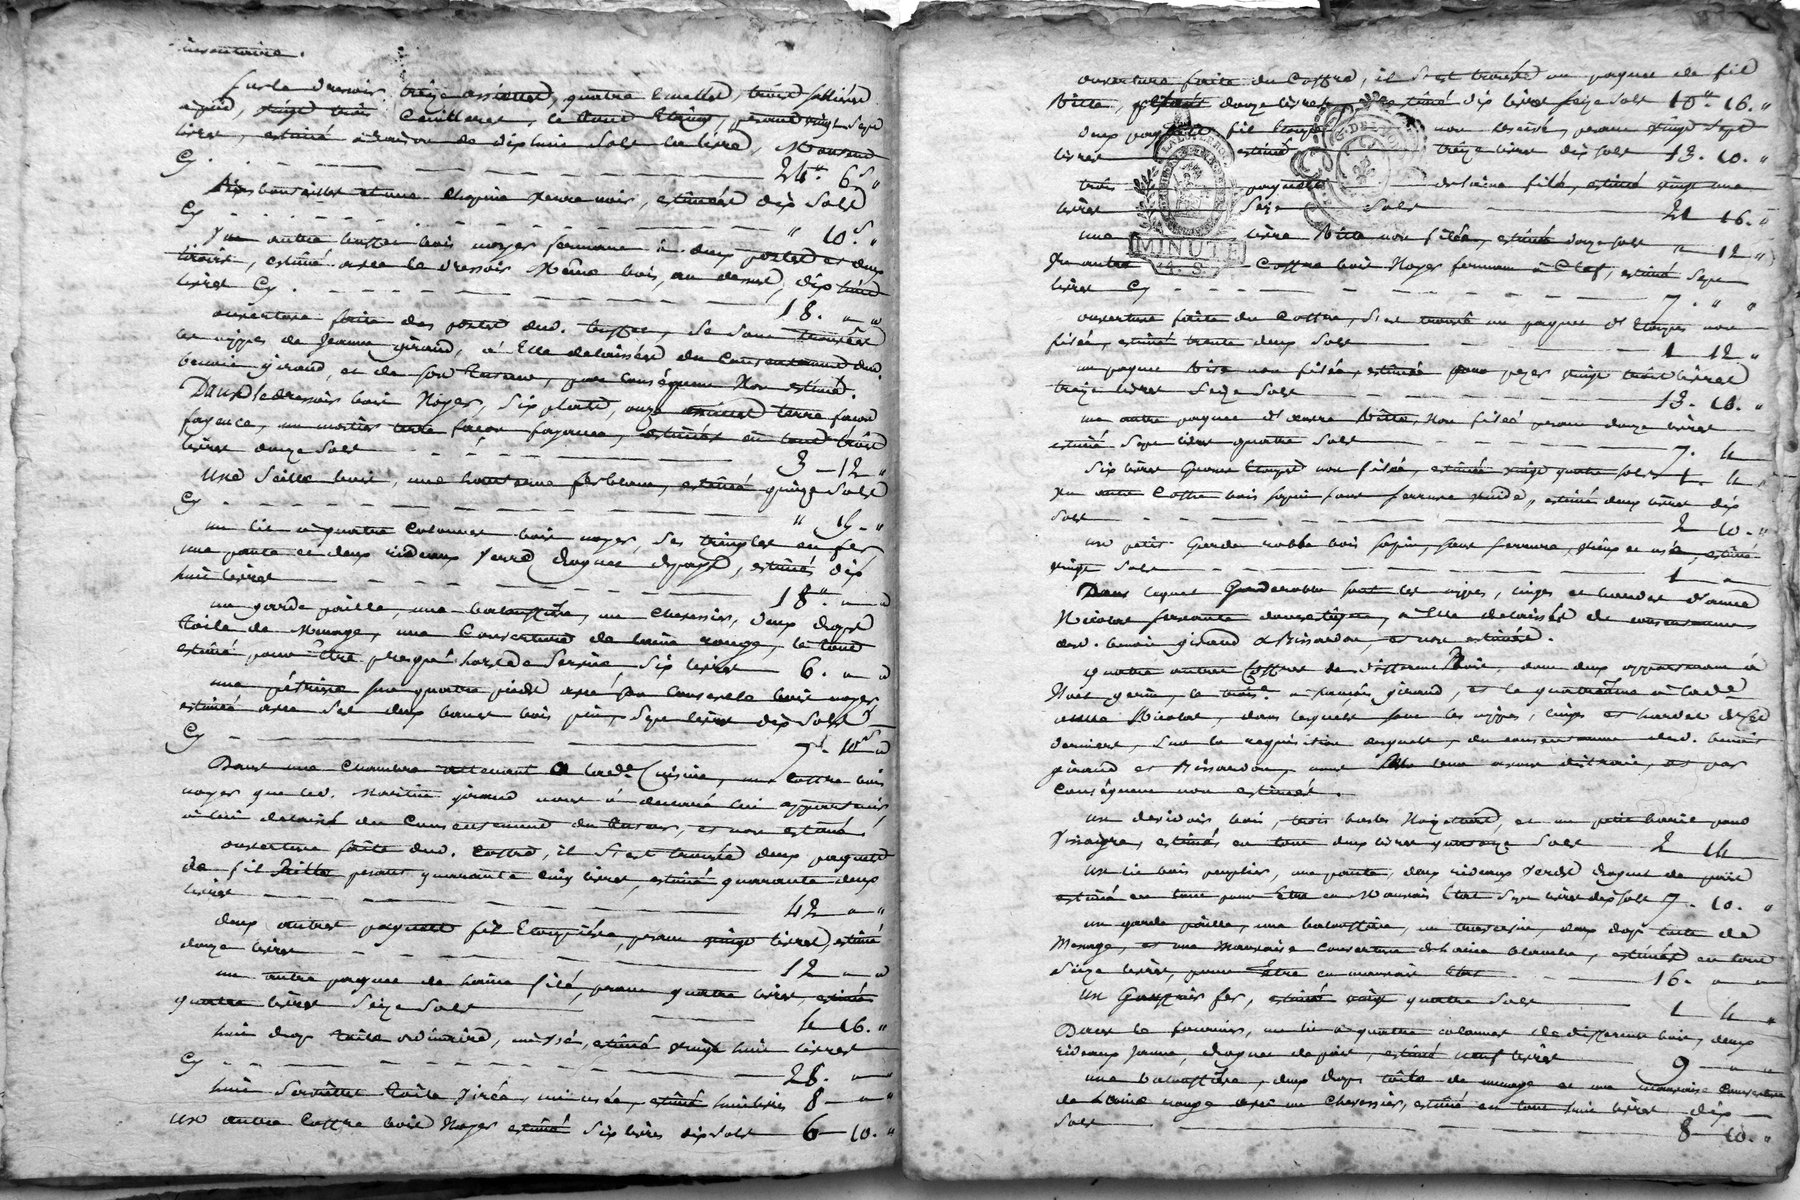 inventaire.
Sur le dressoir, treize assiettes, quatre écuelles, trois sallières
à pied, vingt trois Cuillieres, le tout Etaing, pesant vingt sept
livres, estimé à raison de dix huit Sols la livre, Montant
Cy - - - 24" 6s "
Six bouteilles et une Chopine verre noir, estimées dix Sols
Cy - - - " 10s "
Un autre buffet bois noyer fermant à deux portes et deux
tiroirs, estimé avec le dressoir Même bois, au dessus, dix huit
livres Cy - - - 18. " "
ouverture faite des portes dud. buffet, se sont trouvées
les nippes de Jeanne giraud, à Elle delaissées du Consentement dud.
benoit giraud, et de son tuteur, par conséquent Non estimé.
Dans le dressoir bois Noyer, six plats, onze assiettes terre façon
fayence, un mortier terre façon fayance, estimés en tout trois
livres douze Sols - - - 3 - 12 "
Une Seille bois, une ferblanc, estimé quinze Sols
Cy - - - " 15 - "
un lit à quatre Colonnes bois noyer, ses tringles en fer
une pante et deux rideaux Verre, estimés dix
huit livres - - - 18" " "
un garde paille, une, un Chevessier, deux draps
toile de Menage, une Couverture de laine rouge, le tout
estimé pour être presque hors de Service, Six livres - 6. " "
une pétriere sur quatre pieds avec son Couvercle bois noyer
estimée avec Ses deux bancs bois pin, Sept livres dix Sols
Cy - - - 7l. 10s "
Dans une Chambre attenant à lade. Cuisine, un Coffre bois
noyer que led. giraud nous à declaré lui appartenir,
à lui delaissé du Consentement du tuteur, et non estimé
ouverture faite dud. Coffre, il s'est trouvé deux paquets
de fil Ritte pesant quarante cinq livres, estimé quarante deux
livres - - - 42 " "
deux autres paquets fil Etoupière, pesant vingt livres estimé
douze livres - - - 12 " "
un autre paquet de laine filé, pesant quatre livres, estimé
quatre livres Seize Sols - - - 4 16. "
huit draps toile ordinaire, mi usé, estimé vingt huit livres
Cy - - - 28. " "
huit Serviettes toile, mi usée, estimé huit livres 8 - " "
Un autre Coffre bois Noyer estimé Six livres dix Sols 6 - 10. "
ouverture faite du Coffre, il s'est trouvé un paquet de fil
Ritte, pesant douze livres estimé dix livres Seize Sols 10" 16. "
deux paquets fil Etoupes non, pesant vingt sept
livres estimé treize livres dix Sols 13. 10. "
trois paquets de laine filé, estimé vingt une
livres Seize Sols 21 16. "
une livre Ritte non filée, estimé douze Sols " 12 "
MINUTE
14. S.
Un autre Coffre bois Noyer fermant à Clef, estimé Sept
livres Cy - - - 7. " "
ouverture faite du Coffre, s'est trouvé un paquet d'Etoupes non
filée, estimé trente deux Sols - - - 1 12 "
un paquet Rite non filée, estimée peser vingt trois livres
treize livres Seize Sols - - - 13. 16. "
un autre paquet d'autre Ritte, Non filée pesant douze livres
estimé Sept livres quatre Sols - - - 7. 4
Six livres Etoupes non filée, estimée vingt quatre sols 1. 4 "
Un autre Coffre bois sapin sans ferrure vuide, estimé deux livres dix
Sols - - - 2 10. "
un petit Garde robbe bois sapin, sans ferrure, vieux et usé, estimé
vingt Sols - - - 1 "
Dans lequel Garderobbe sont les nippes, linges et hardes d'anne
Nicolas servante domestique, à Elle delaissés du consentement
dud. benoit giraud & Bissardon, et non estimés.
Quatre autres Coffres de different Bois, dont deux appartenant à
, le trois.e à giraud, et le quatrième à lade.
anne Nicolas, dans lesquels sont les nippes, linges et hardes de ces
derniers, sur la requisition desquels, du consentement dud. benoit
giraud et Bissardon, nous, et par
Conséquent non estimés.
un devidoir bois, trois, et un petit baril pour
Vinaigre, estimés en tout deux livres quatorze Sols - 2 14
un lit bois peuplier, une pante, deux rideaux Verds
estimé en tout pour Etre en Mauvais Etat Sept livres dix sols 7. 10. "
un garde paille, une, un traversin, deux draps toile de
Menage, et une Mauvaise couverture de laine blanche, estimés en tout
Seize livres, pour Etre en mauvais Etat - - - 16. " "
un fer, estimé vingt quatre Sols - - - 1 4 "
Dans le fournier, un lit à quatre colonnes de different bois, deux
rideaux Jaune, estimé neuf livres - 9 - " "
une, deux draps toile de menage et une mauvaise Couverture
de laine rouge avec un Chevessier, estimé en tout huit livres dix
Sols - - - 8 10. "